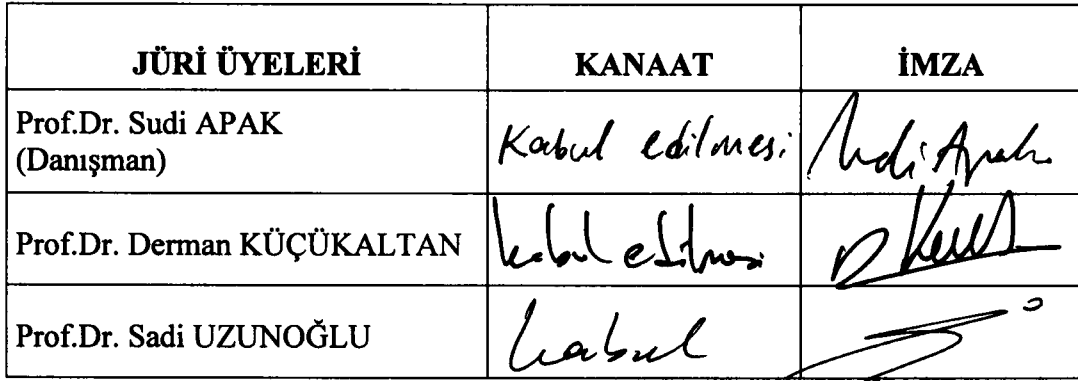 JÜRİ ÜYELERİ KANAAT İMZA
Prof.Dr. Sudi APAK
(Danışman) Kabul edilmesi Sudi Apak
Prof.Dr. Derman KÜÇÜKALTAN kabul edilmesi
Prof.Dr. Sadi UZUNOĞLU kabul